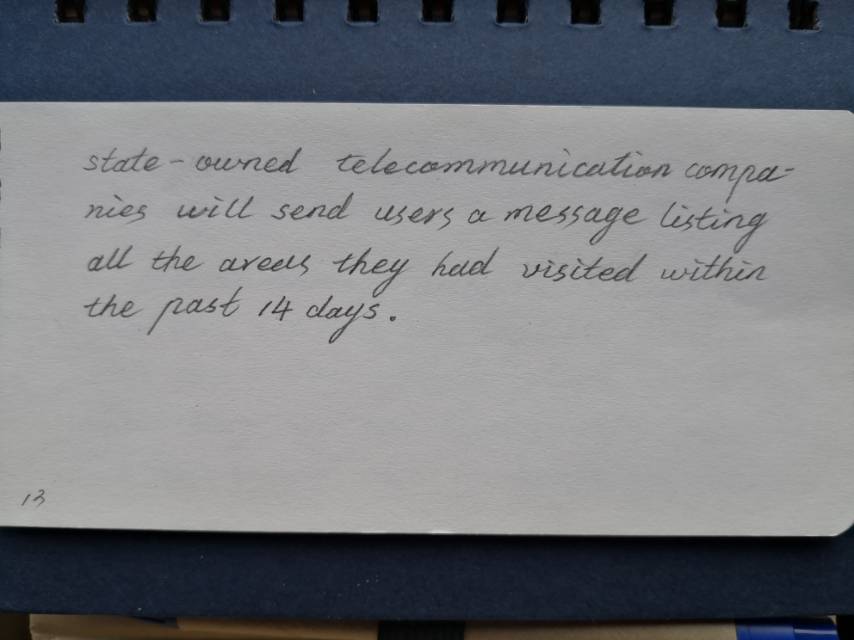 state-owned telecommunication compa-
nies will send users a message listing
all the areas they had visited within
the past 14 days.
13